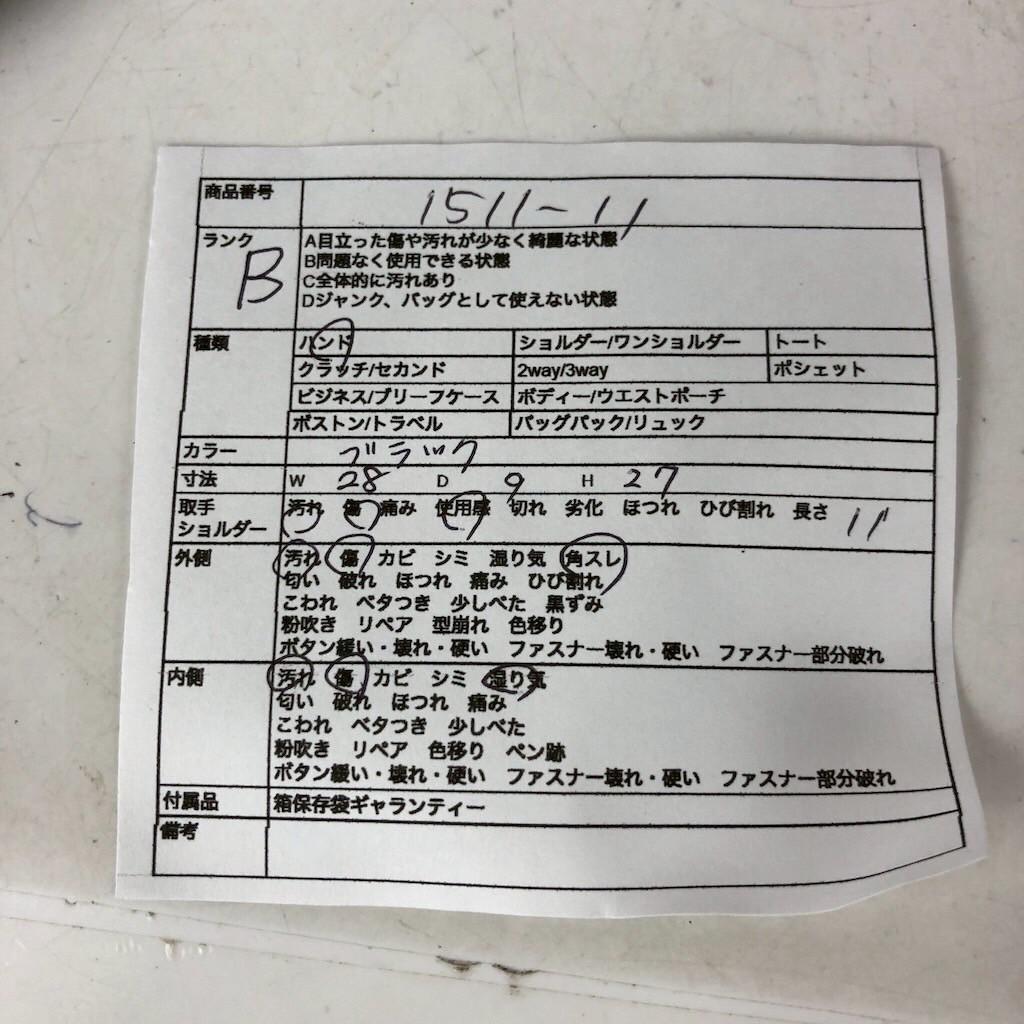 商品番号 1511-11
ランク B
A目立った傷や汚れが少なく綺麗な状態
B問題なく使用できる状態
C全体的に汚れあり
Dジャンク、バッグとして使えない状態
種類 ハンド ショルダー/ワンショルダー トート
クラッチ/セカンド 2way/3way ポシェット
ビジネス/ブリーフケース ボディー/ウエストポーチ
ボストン/トラベル バッグパック/リュック
カラー ブラック
寸法 W 28 D 9 H 27
取手 汚れ 傷 痛み 使用感 切れ 劣化 ほつれ ひび割れ 長さ 11
ショルダー
外側 汚れ 傷 カビ シミ 湿り気 角スレ
匂い 破れ ほつれ 痛み ひび割れ
こわれ ベタつき 少しべた 黒ずみ
粉吹き リペア 型崩れ 色移り
ボタン緩い・壊れ・硬い ファスナー壊れ・硬い ファスナー部分破れ
内側 汚れ 傷 カビ シミ 湿り気
匂い 破れ ほつれ 痛み
こわれ ベタつき 少しべた
粉吹き リペア 色移り ペン跡
ボタン緩い・壊れ・硬い ファスナー壊れ・硬い ファスナー部分破れ
付属品 箱保存袋ギャランティー
備考